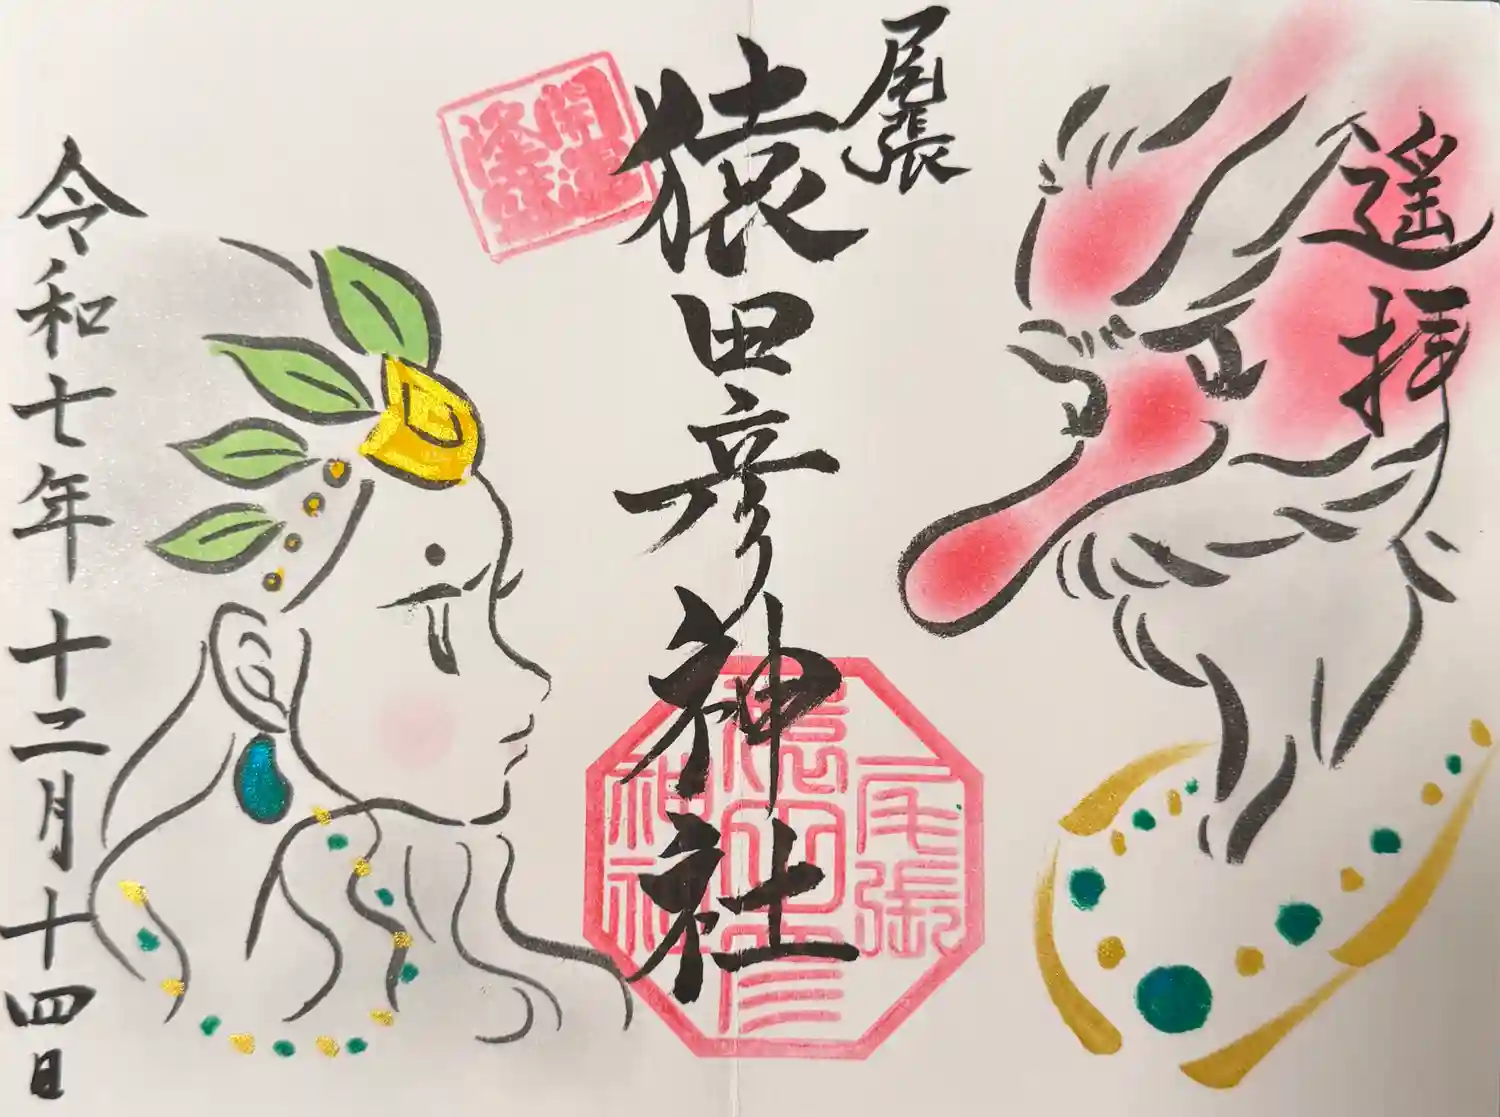 遥拝
尾張
猿田彦神社
開運
隆盛
尾張
猿田彦
神社
令和七年十二月十四日